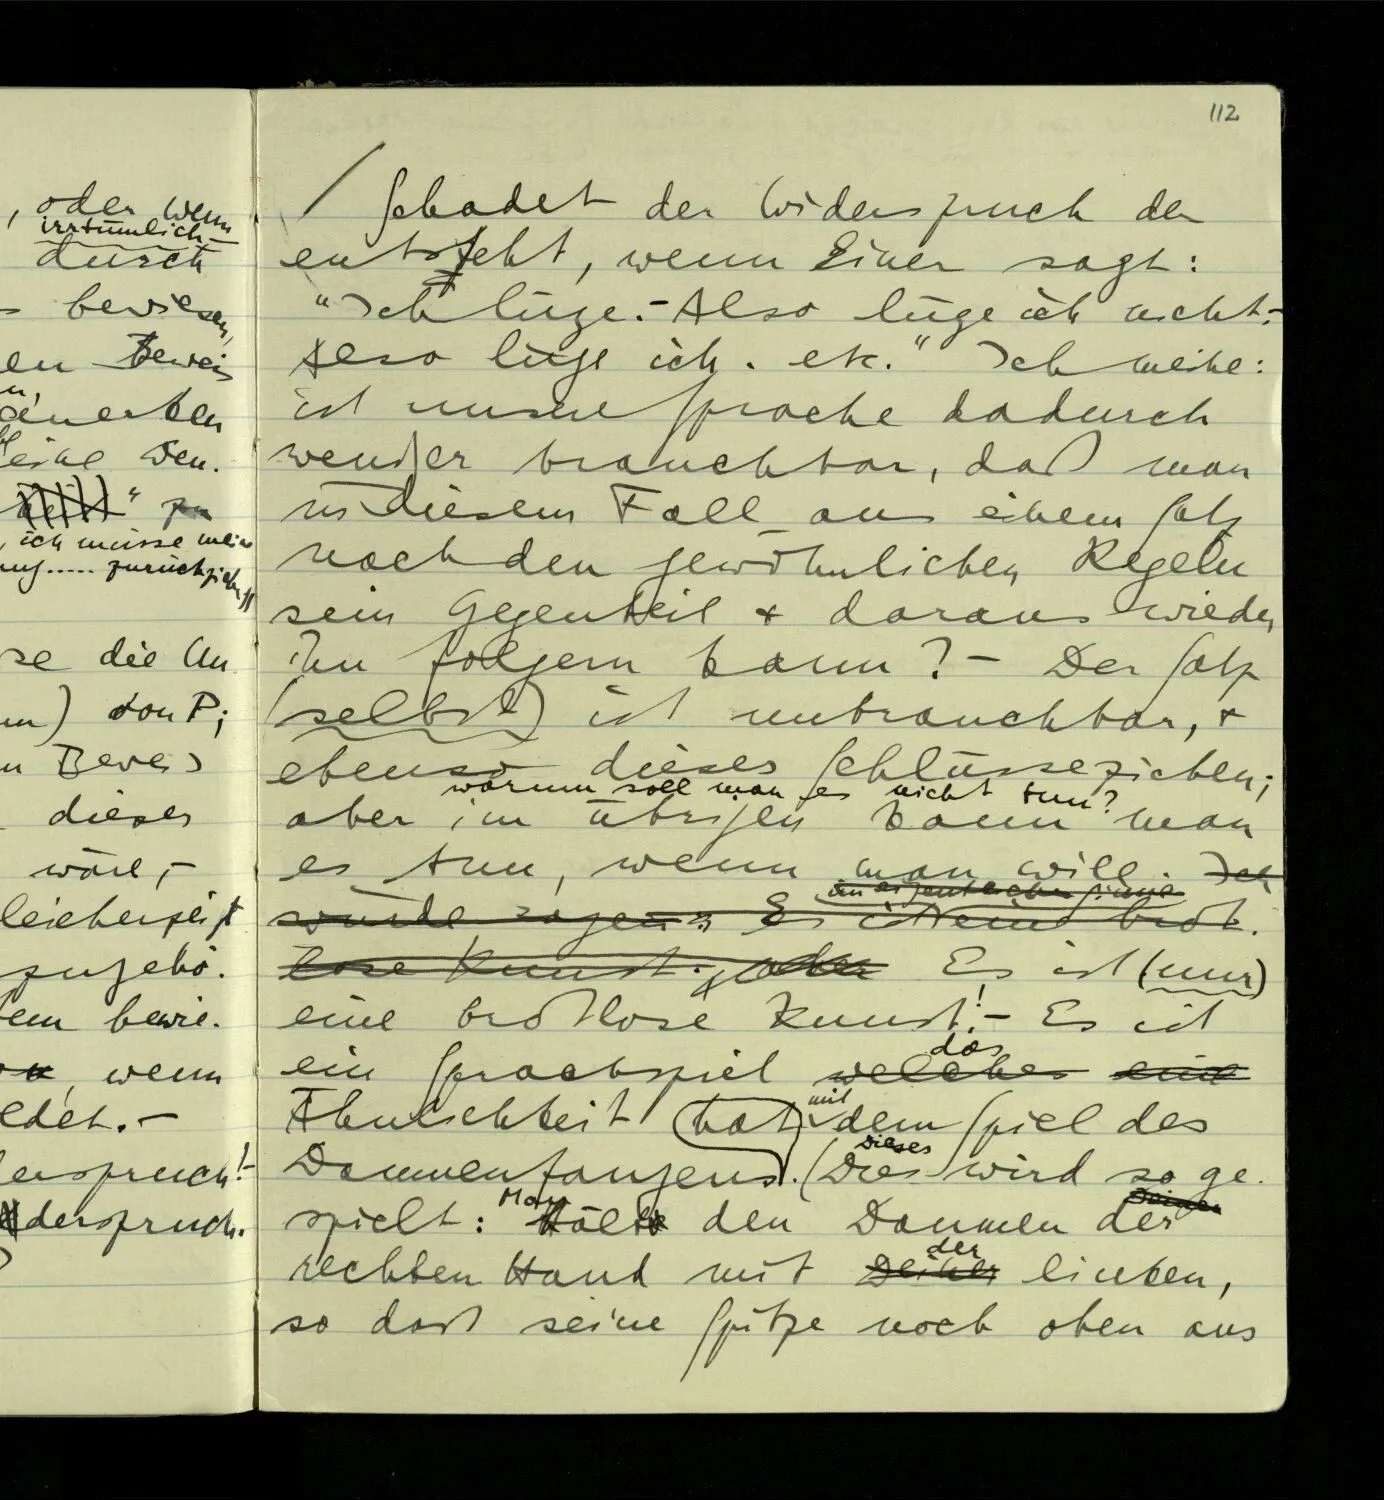 , oder wenn
irrtümlich
durch
bewiesen,
en Beweis
eine den.
" zu
, ich müsse mein
ung..... zurückziehen"
se die An
) von P;
n Beweis
dieses
wäre, –
gleicherzeigt
zugehö.
dem bewie.
, wenn
ldet. –
erspruch! –
derspruch.
112
/ Schadet der Widerspruch der
entsteht, wenn Einer sagt:
"Ich lüge. – Also lüge ich nicht. –
Also lüge ich. etc." Ich meine:
ist unsere Sprache dadurch
weniger brauchbar, daß man
in diesem Fall aus einem Satz
nach den gewöhnlichen Regeln
sein Gegenteil & daraus wieder
ihn folgern kann? – Der Satz
(selbst) ist unbrauchbar, &
ebenso dieses Schlüsseziehen;
warum soll man es nicht tun?
aber im übrigen kann man
es tun, wenn man will. Ich
im eigentlichen Sinne
würde sagen: Es ist eine brot.
lose Kunst; oder Es ist (nur)
eine brotlose Kunst! – Es ist
das
ein Sprachspiel welches eine
mit
Ähnlichkeit hat dem Spiel des
Dieses
Daumenfangens. (Dies wird so ge.
Man seinen
spielt: Hält den Daumen der
der
rechten Hand mit Deiner linken,
so daß seine Spitze noch oben aus